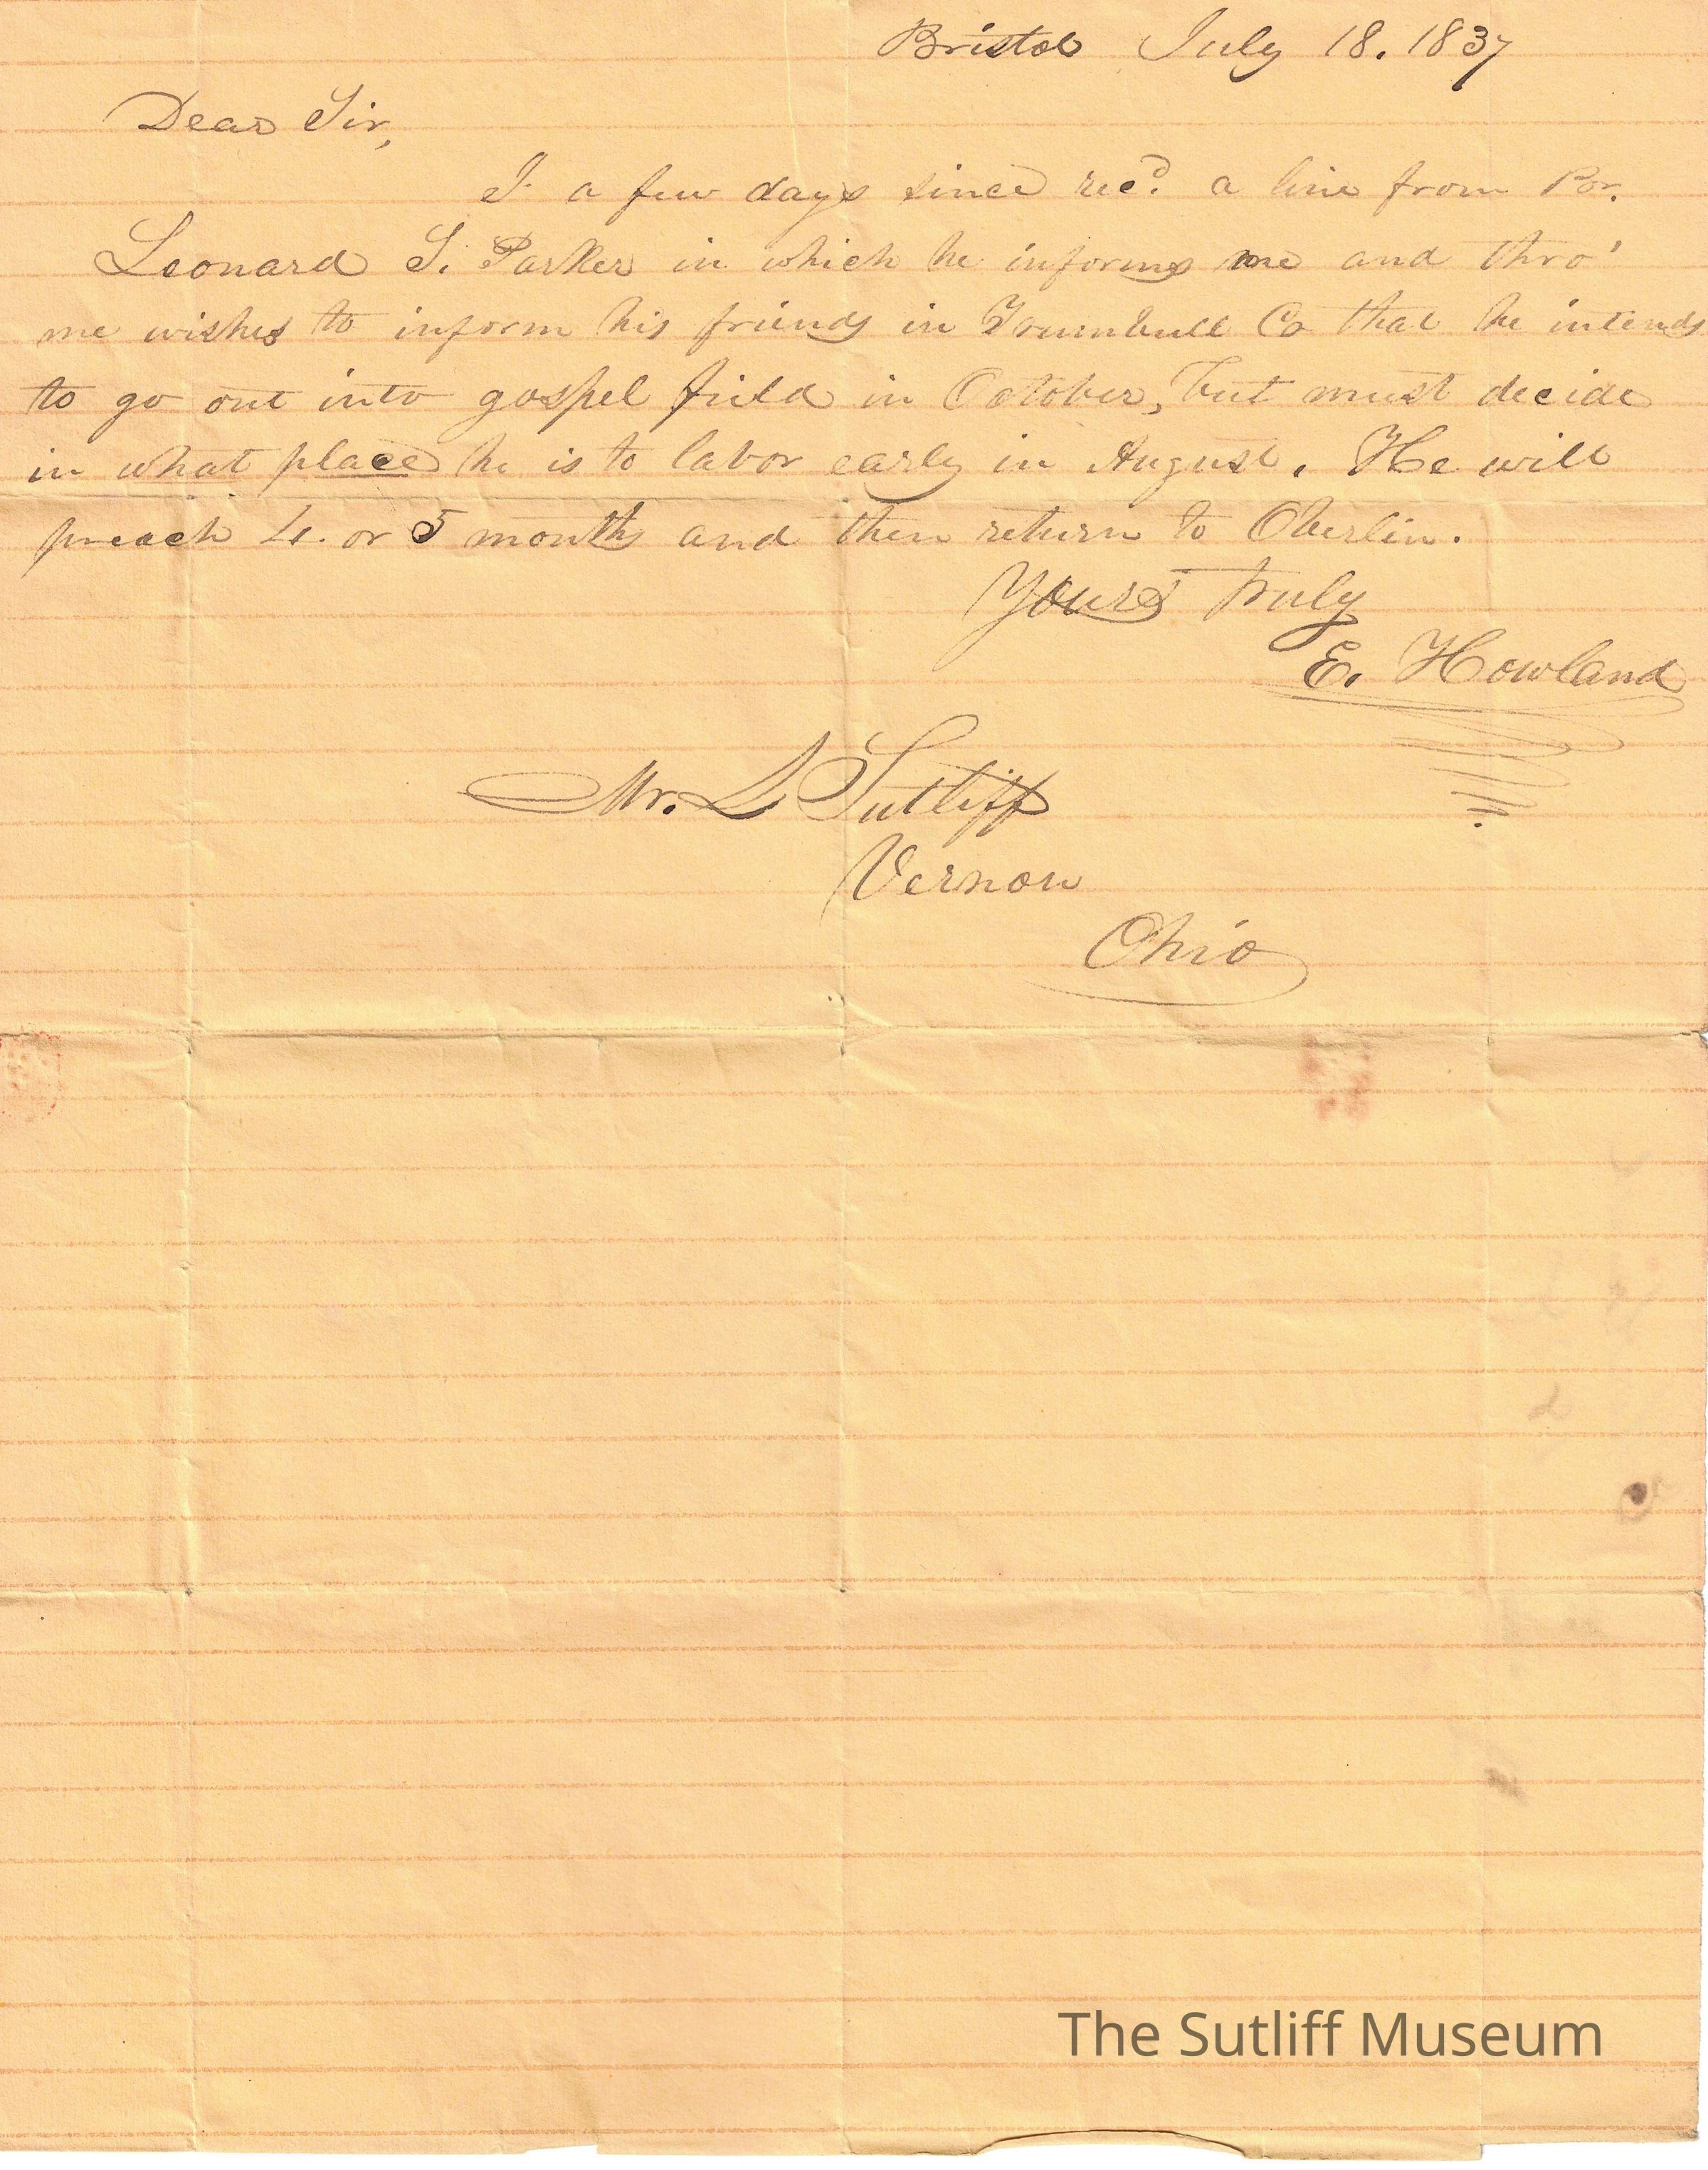 Bristol July 18. 1837
Dear Sir,
I a few days since recd. a line from Bor.
Leonard S. Parker in which he informs me and thro'
me wishes to inform his friends in Trumbull Co that he intends
to go out into gospel field in October, but must decide
in what place he is to labor early in August. He will
preach 4. or 5 months and then return to Oberlin.
Yours truly
E. Howland
Mr. L Sutliff
Vernon
Ohio
The Sutliff Museum